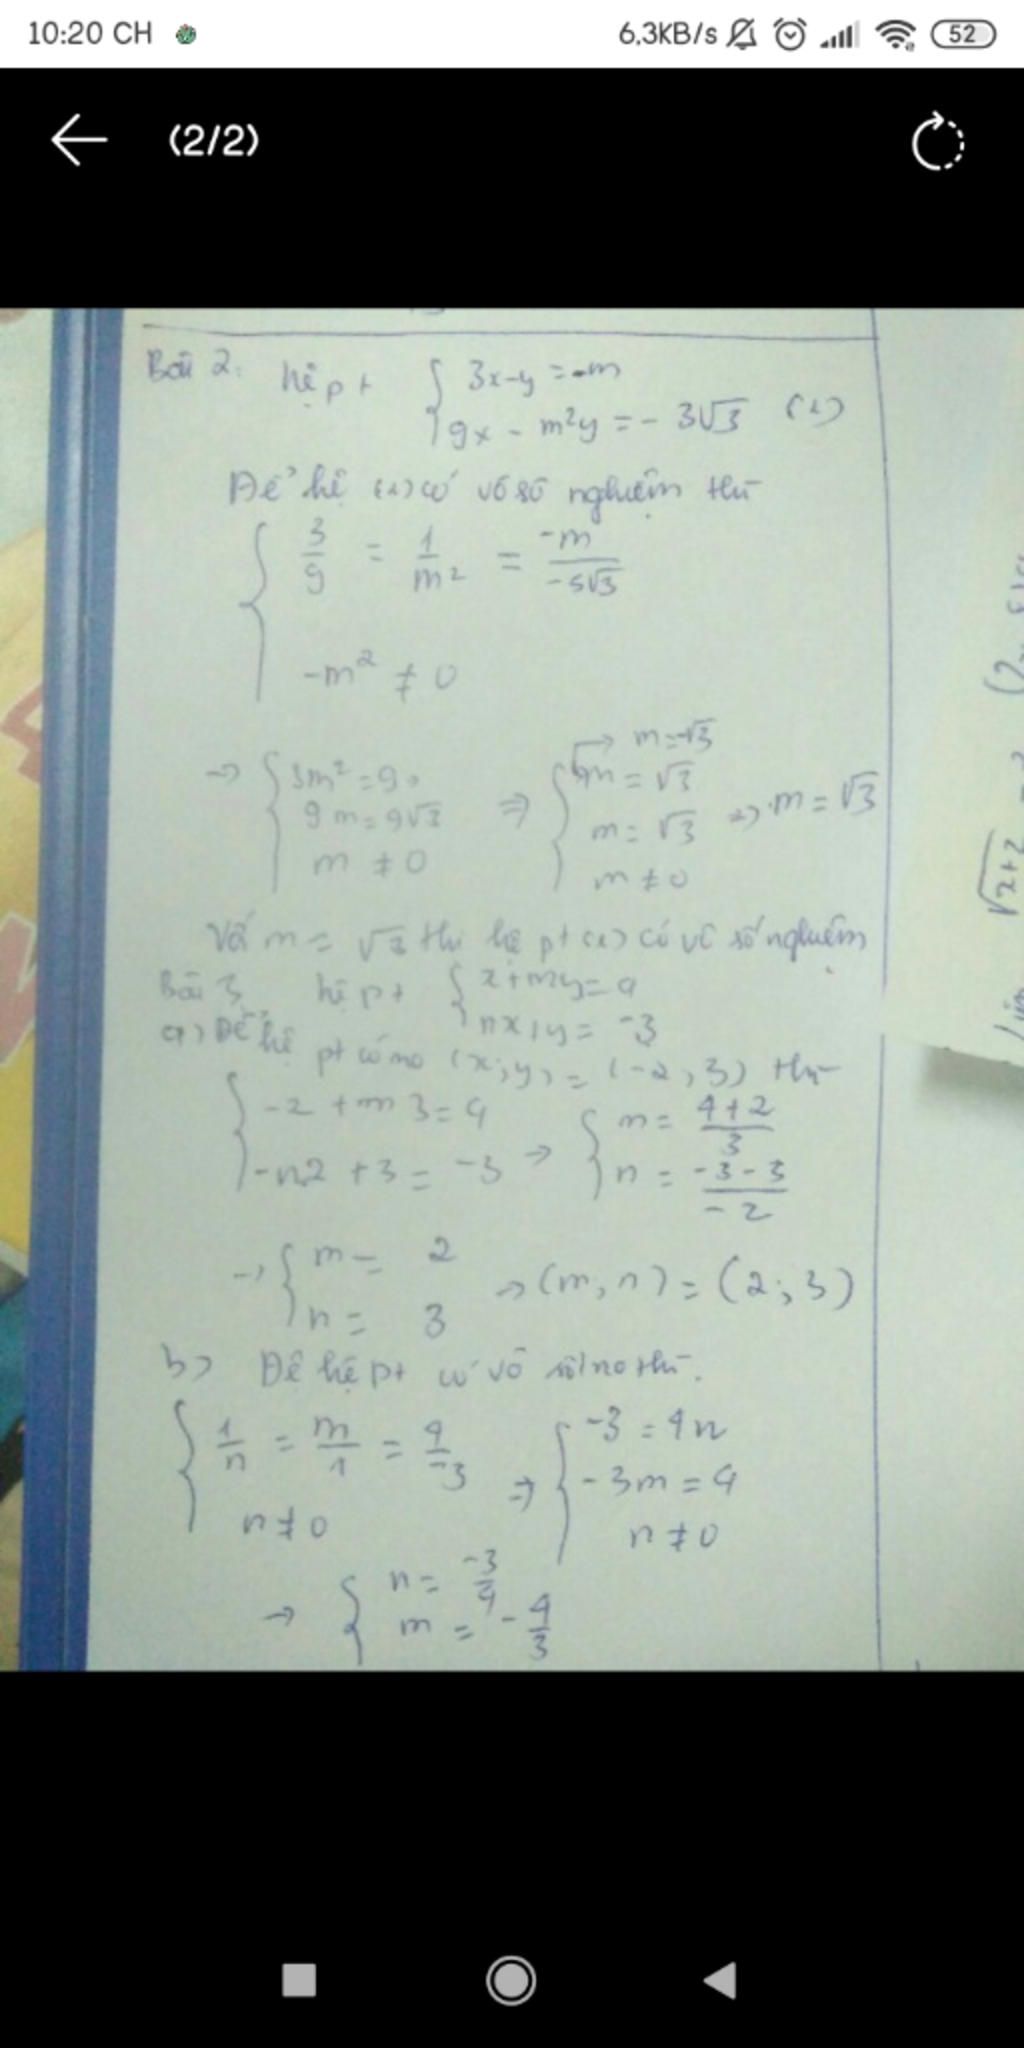 10:20 CH 6,3KB/s 52
(2/2)
Bài 2: hệ pt { 3x-y = -m
9x - m²y = - 3√3 (1)
Để hệ (1) có vô số nghiệm thì
{ 3/9 = 1/m² = -m/-3√3
-m² ≠ 0
→ { 3m² = 9
9m = 9√3
m ≠ 0
⇒ { → m = -√3
m = √3
m = √3
m ≠ 0
⇒ m = √3
Với m = √3 thì hệ pt (1) có vô số nghiệm
Bài 3 hệ pt { x+my = 4
nx+y = -3
a) Để hệ pt có no (x;y) = (-2,3) thì
{ -2 + m3 = 4
-n2 + 3 = -3
→ { m = 4+2/3
n = -3-3/-2
→ { m = 2
n = 3
→ (m,n) = (2;3)
b) Để hệ pt có vô số no thì.
{ 1/n = m/1 = 4/-3
n ≠ 0
⇒ { -3 = 4n
-3m = 4
n ≠ 0
→ { n = -3/4
m = -4/3
√x+2